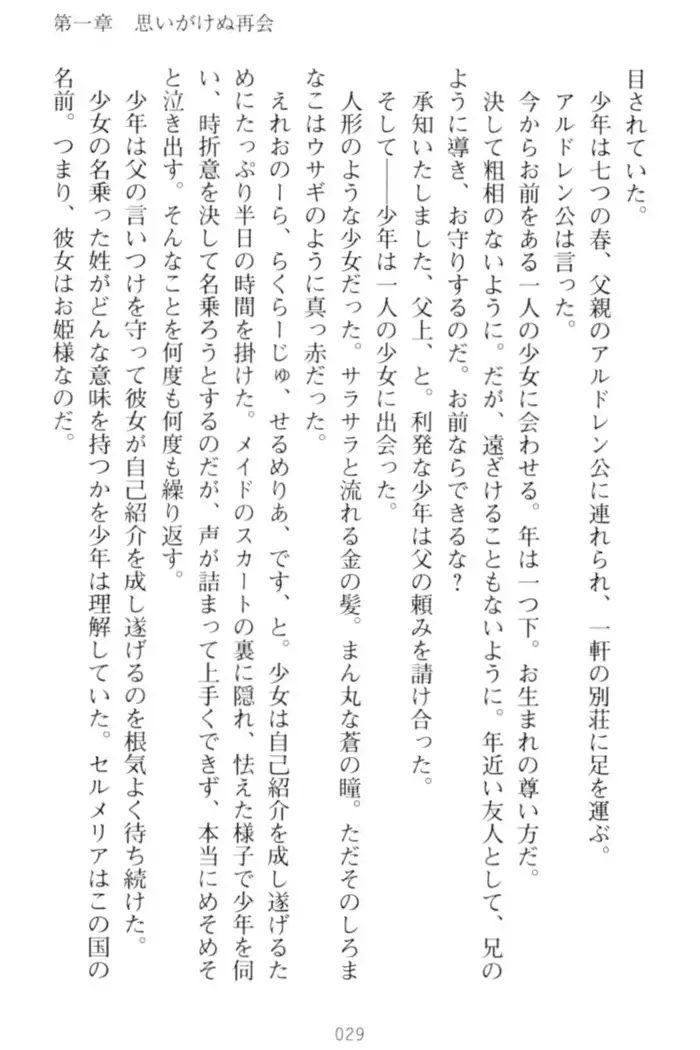 第一章　思いがけぬ再会
目されていた。
　少年は七つの春、父親のアルドレン公に連れられ、一軒の別荘に足を運ぶ。
　アルドレン公は言った。
　今からお前をある一人の少女に会わせる。年は一つ下。お生まれの尊い方だ。
　決して粗相のないように。だが、遠ざけることもないように。年近い友人として、兄の
ように導き、お守りするのだ。お前ならできるな？
　承知いたしました、父上、と。利発な少年は父の頼みを請け合った。
　そして――少年は一人の少女に出会った。
　人形のような少女だった。サラサラと流れる金の髪。まん丸な蒼の瞳。ただそのしろま
なこはウサギのように真っ赤だった。
　えれおのーら、らくらーじゅ、せるめりあ、です、と。少女は自己紹介を成し遂げるた
めにたっぷり半日の時間を掛けた。メイドのスカートの裏に隠れ、怯えた様子で少年を伺
い、時折意を決して名乗ろうとするのだが、声が詰まって上手くできず、本当にめそめそ
と泣き出す。そんなことを何度も何度も繰り返す。
　少年は父の言いつけを守って彼女が自己紹介を成し遂げるのを根気よく待ち続けた。
　少女の名乗った姓がどんな意味を持つかを少年は理解していた。セルメリアはこの国の
名前。つまり、彼女はお姫様なのだ。
029